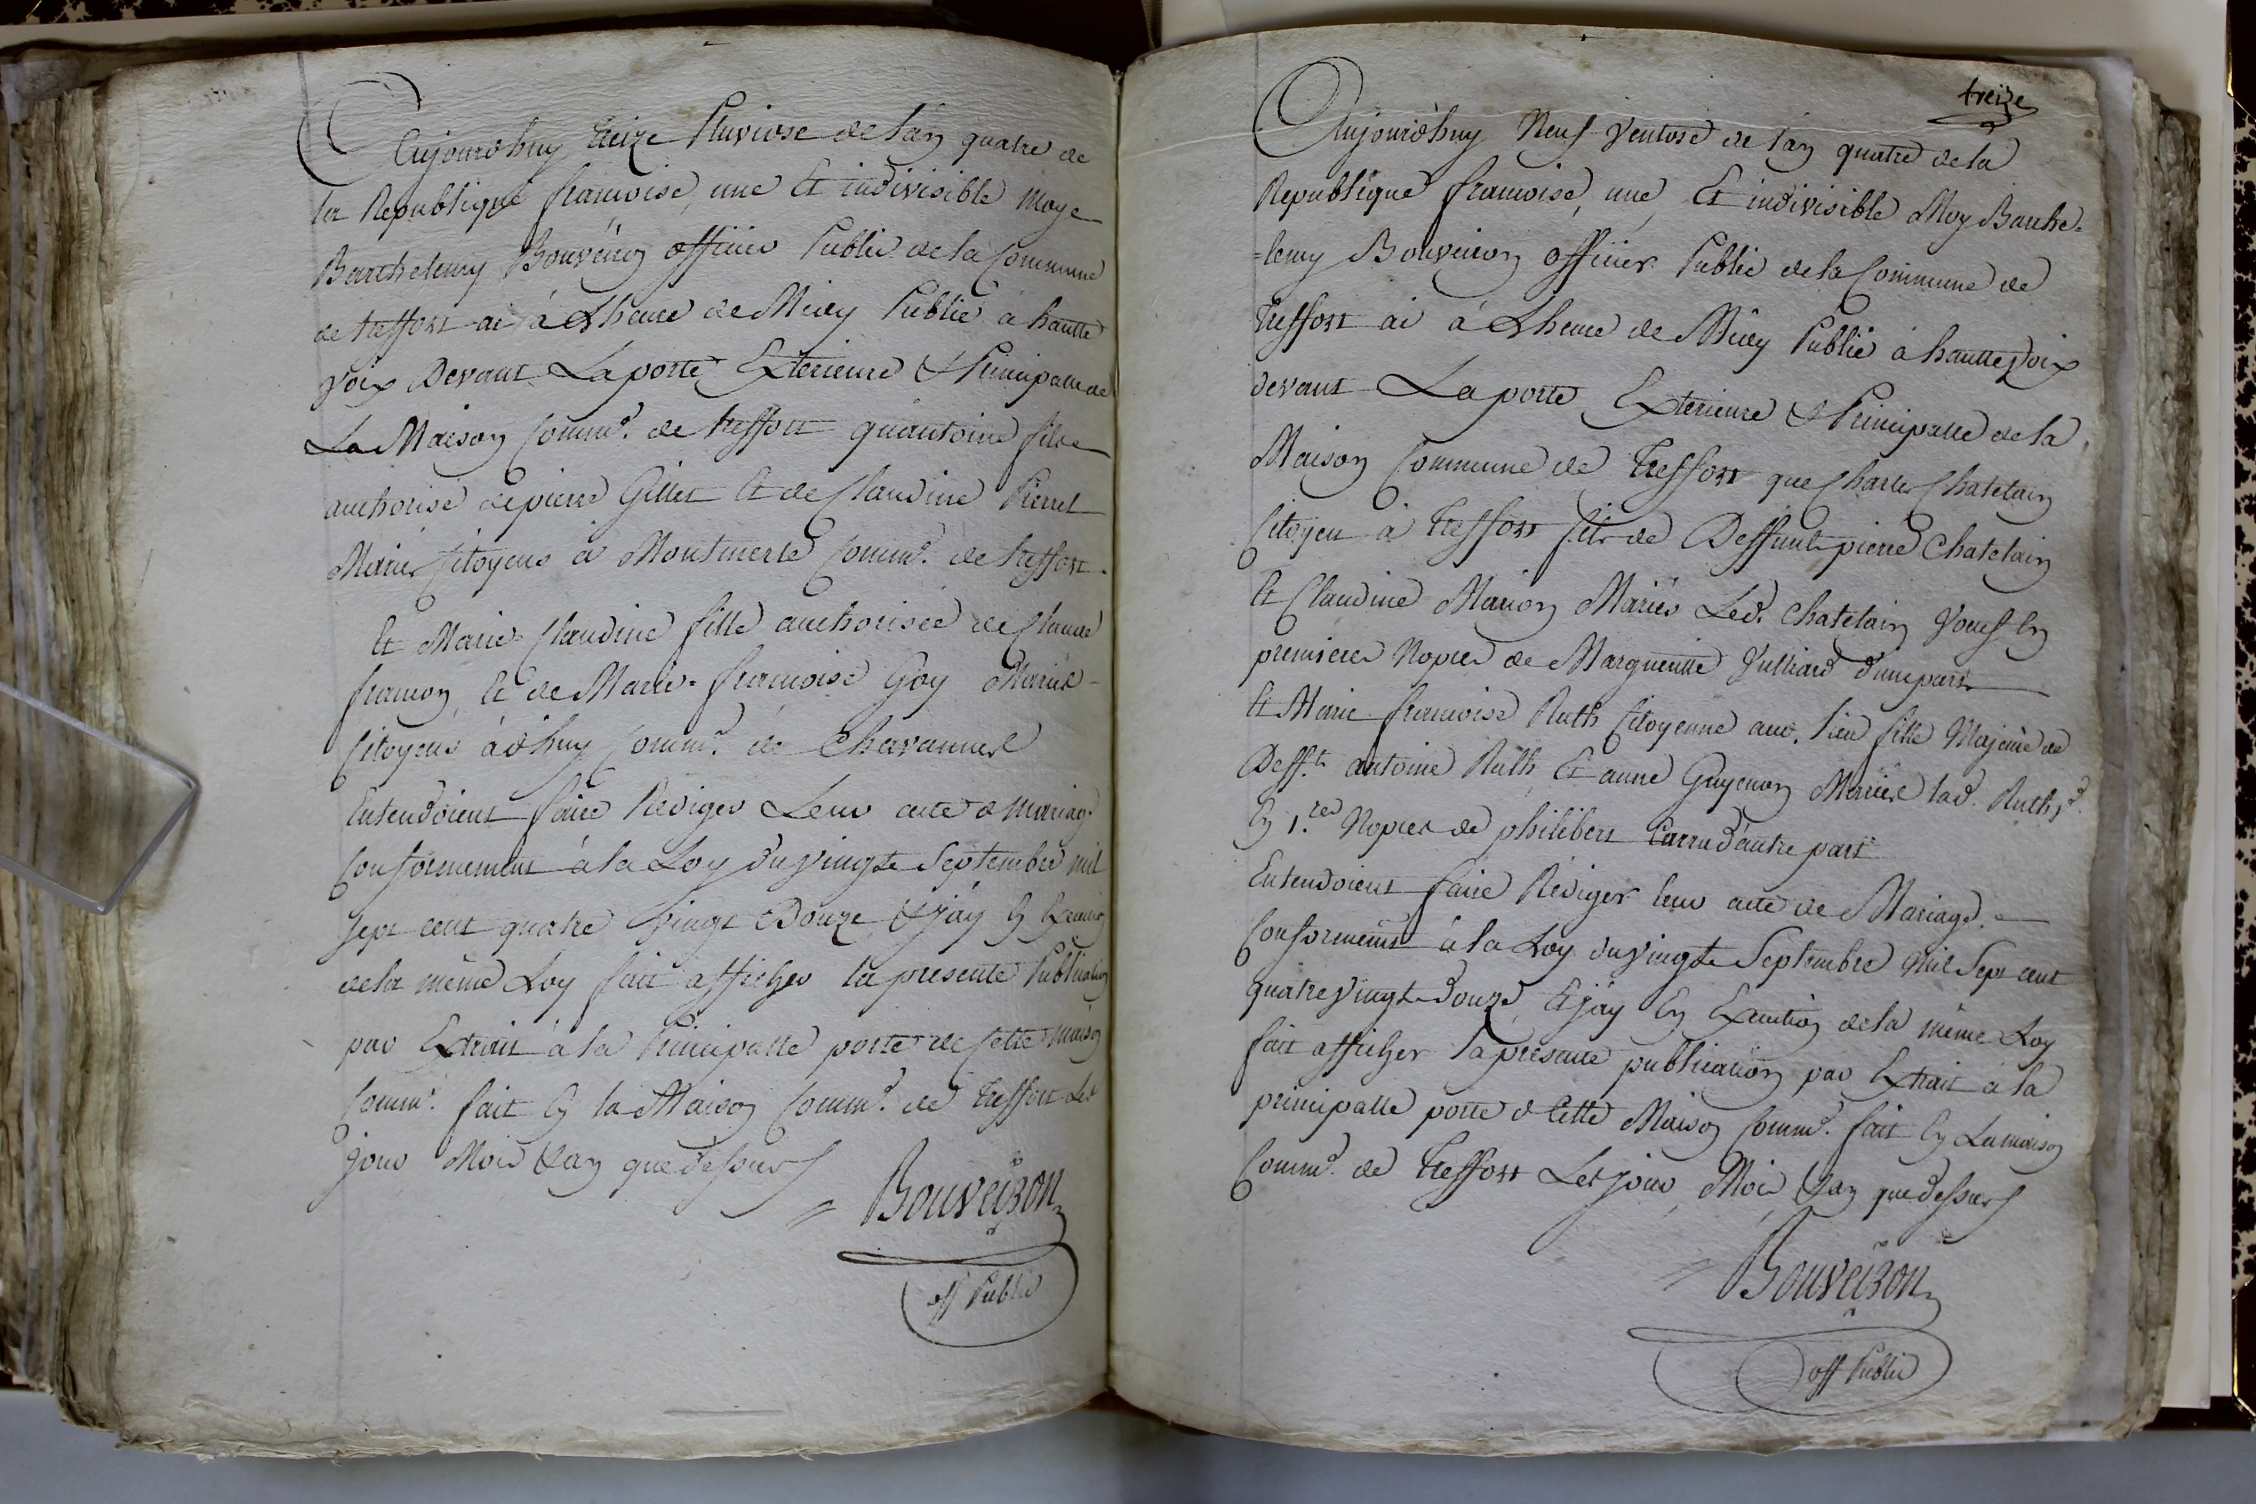 Aujourdhuy treize Pluviose de l'an quatre de
la Republique francoise, une Et indivisible Moye
Barthelemy Bouveiron officier Public de la Commune
de treffort ai à Lheure de Midy Publié à hautte
voix Devant La porte Exterieure & Principalle de
La Maison Comm.e de treffort qu'antoine fils
authorisé de pierre Gillet Et de Claudine Pierret
Mariés Citoyens à Montmerle Comm.e de treffort.
Et Marie-Claudine fille authorisée de Claude
francon, Et de Marie-francoise Goy Mariés
Citoyens à dhuy Comm.e de Chavannes
Entendoient faire Rediger Leur acte de Mariag.
Conformement à la Loy du vingt Septembre mil
Sept cent quatre vingt Douze, & jay En Execution
de la même Loy fait afficher la presente Publication
par Extrait à la Principalle porte de Cette Maison
Comm.e fait En la Maison Comm.e de treffort Les
jour Mois & an que dessus
Bouveiron
off Public
treize
Aujourdhuy Neuf Ventose de l'an quatre de la
Republique francoise, une, Et indivisible Moy Barthe-
=lemy Bouveiron officier Public de la Commune de
treffort ai à Lheure de Midy Publié à hautte Voix
devant La porte Exterieure & Principalle de la
Maison Commune de treffort que Charles Chatelain
Citoyen à treffort fils de Deffunt pierre Chatelain
Et Claudine Marion Mariés Led. Chatelain Veuf En
premieres Nopces de Marguerite Julliard d'une part
Et Marie francoise Ruth Citoyenne aud. lieu fille Majeure de
Deff.t antoine Ruth, Et anne Guyenon Mariés lad. Ruth
En 1.res Nopces de philibert d'autre part
Entendoient faire Rediger leur acte de Mariage.
Conformemt à la Loy du vingt Septembre Mil Sept cent
quatre vingt douze, Et jay En Execution de la même Loy
fait afficher la presente publication par Extrait à la
principalle porte de Cette Maison Comm.e fait En La maison
Comm.e de treffort Les jour, Mois, & an que dessus
Bouveiron
off Public